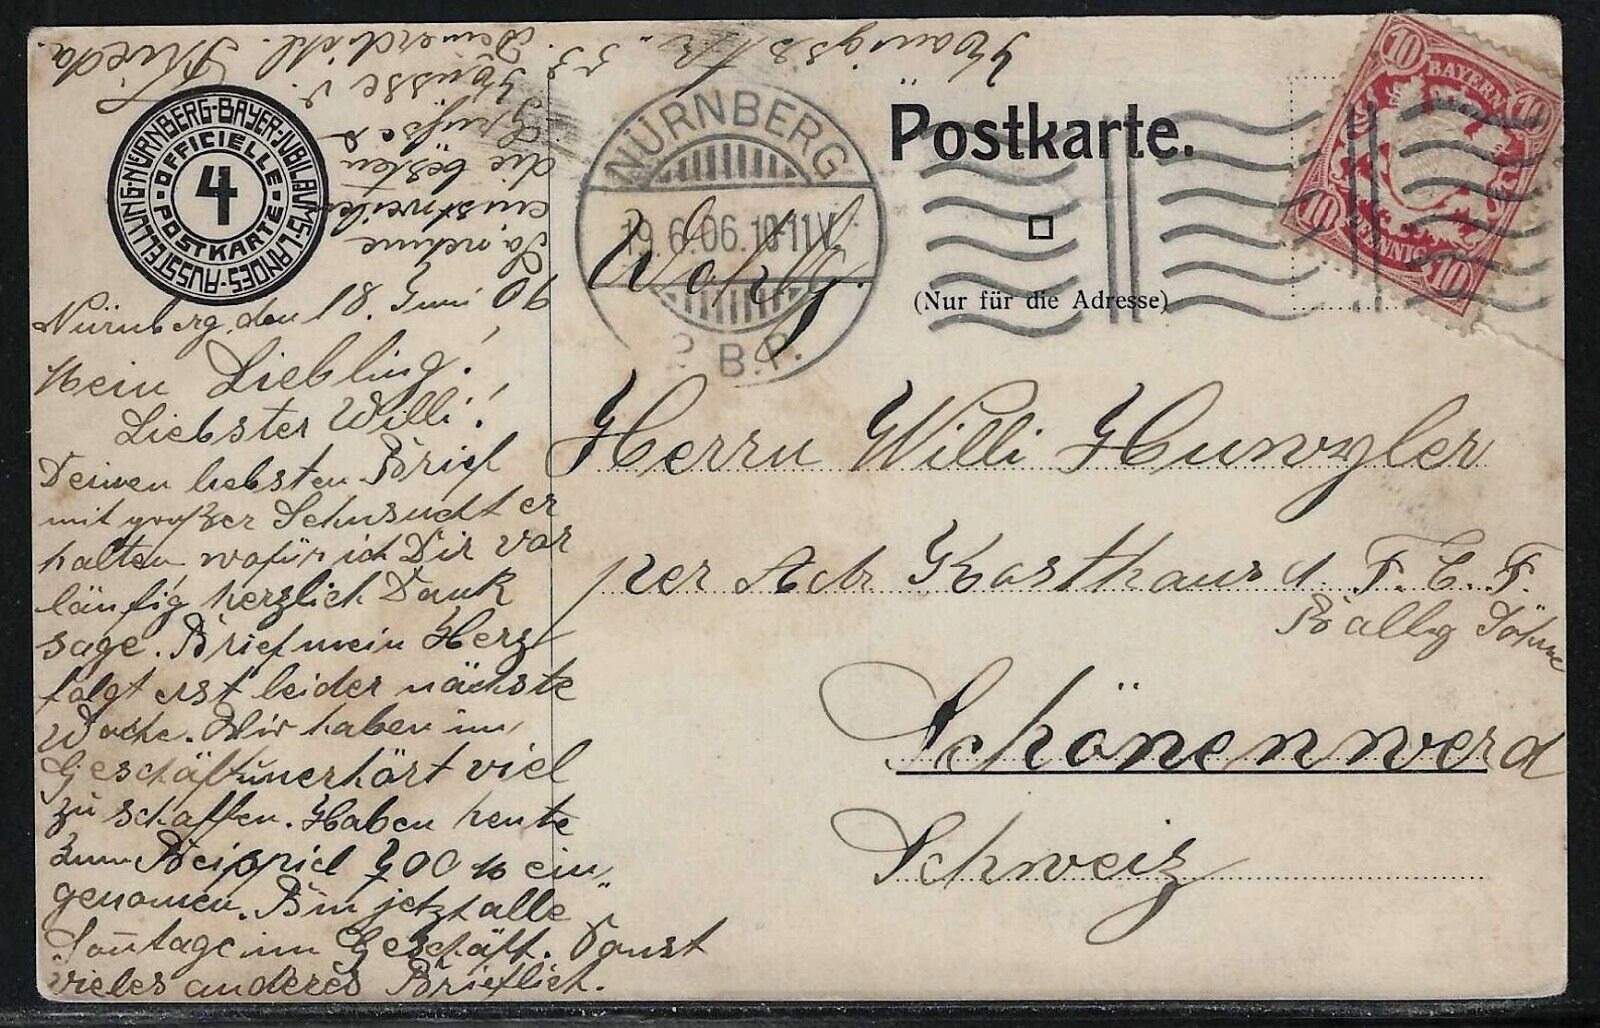 NÜRNBERG-BAYER-JUBILÄUMS-LANDES-AUSSTELLUNG-
OFFICIELLE
4
POSTKARTE
Nürnberg, den 18. Juni 06
Mein Liebling!
Liebster Willi!
Deinen liebsten Brief
mit großer Sehnsucht er
halten, wofür ich Dir vor
läufig herzlich Dank
sage. Brief mein Herz
folgt erst leider nächste
Woche. Wir haben im
Geschäft unerhört viel
zu schaffen. Haben heute
zum Beispiel 300 M ein
genomen. Bin jetzt alle
Sonntage im Geschäft. Sonst
vieles anderes Brieflich.
So nehme
einstweilen
die besten
Grüße &
Küsse v.
Deiner
Frieda
53.
NÜRNBERG
19.6.06.10-11V.
2 B.P.
Wohlg.
Postkarte.
(Nur für die Adresse)
10 BAYERN 10
10 PFENNIG 10
Herrn Willi Hunzyler
per Adr Kosthaus d. F. C. F.
Bally Söhne
Schönenwerd
Schweiz